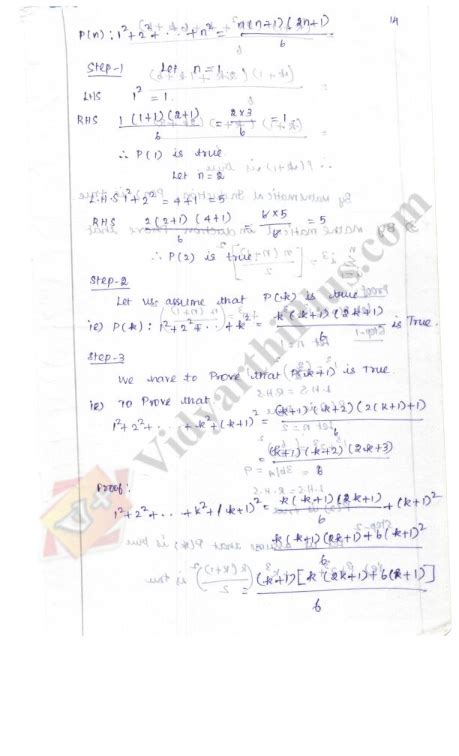 14
P(n) : 1² + 2² + · · · + n² = n(n+1)(2n+1) / 6
Step-1 Let n = 1
LHS 1² = 1.
RHS 1(1+1)(2+1) / 6 = 2×3 / 6 = 1
∴ P(1) is true.
Let n = 2
L.H.S 1² + 2² = 4+1 = 5
RHS 2(2+1)(4+1) / 6 = 6×5 / 6 = 5
∴ P(2) is true
Step-2
Let us assume that P(k) is true
ie) P(k) : 1² + 2² + · · + k² = k(k+1)(2k+1) / 6 is True.
Step-3
We have to Prove that P(k+1) is True.
ie) To Prove that
1² + 2² + · · + k² + (k+1)² = (k+1)(k+2)(2(k+1)+1) / 6
= (k+1)(k+2)(2k+3) / 6
Proof:
1² + 2² + · · + k² + (k+1)² = k(k+1)(2k+1) / 6 + (k+1)²
= k(k+1)(2k+1) + 6(k+1)² / 6
= (k+1)[k(2k+1) + 6(k+1)] / 6
V+
Vidyarthiplus.com